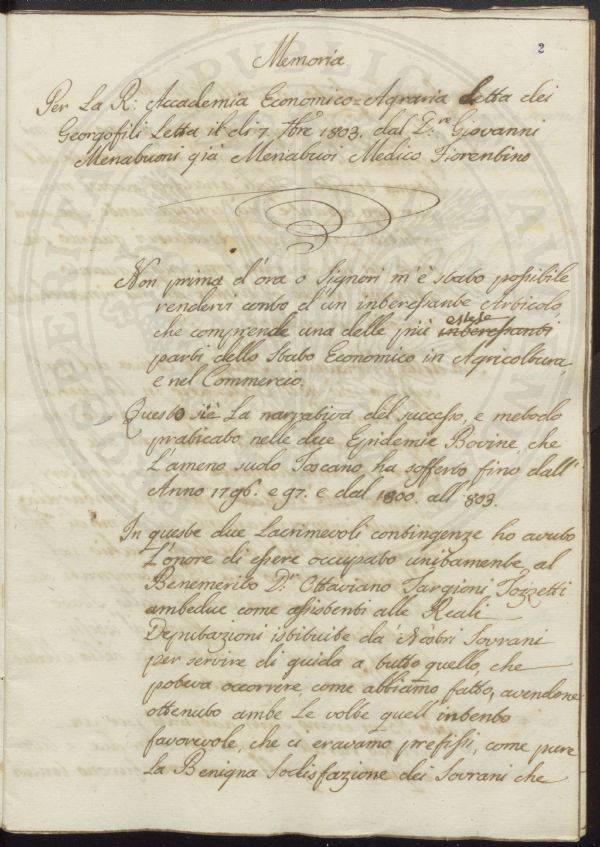 2
Memoria
Per La R: Accademia Economico=Agraria Letta dei
Georgofili Letta il di 7. 7bre 1803. dal D.re Giovanni
Menabuoni già Menabuoi Medico Fiorentino
Non prima d'ora o Signori m'è stato possibile
rendervi conto d'un interessante Articolo,
che comprende una delle più estese interessanti
parti dello Stato Economico in Agricoltura,
e nel Commercio.
Questo siè La narrativa del successo, e metodo
praticato nelle due Epidemie Bovine, che
L'ameno suolo Toscano ha sofferto fino dall'
Anno 1796. e 97. e dal 1800. all' 803.
In queste due Lacrimevoli contingenze ho avuto
L'onore di essere occupato unitamente al
Benemerito D.r Ottaviano Targioni Tozzetti
ambedue come assistenti alle Reali
Deputazioni istituite da' Nostri Sovrani
per servire di guida a tutto quello, che
poteva occorrere, come abbiamo fatto, avendone
ottenuto ambe Le volte quell' intento
favorevole, che ci eravamo prefissi, come pure
La Benigna Sodisfazione dei Sovrani che